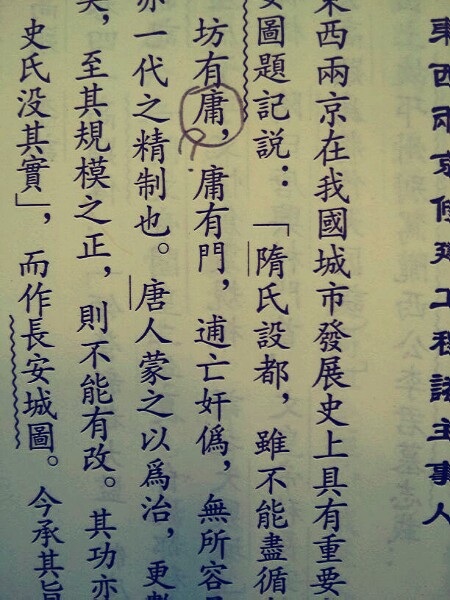 東西兩京修建工程諸主事人
東西兩京在我國城市發展史上具有重要
安圖題記說：「隋氏設都，雖不能盡循
坊有庸，庸有門，逋亡奸僞，無所容
亦一代之精制也。唐人蒙之以爲治，更數
矣，至其規模之正，則不能有改。其功亦
史氏没其實」，而作長安城圖。今承其旨